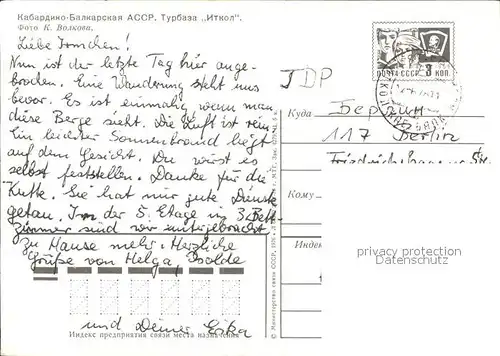 Кабардино-Балкарская АССР. Турбаза „Иткол".
Фото К. Волкова.
Liebe Irmchen!
Nun ist der letzte Tag hier ange-
brochen. Eine Wanderung steht uns
bevor. Es ist einmalig wenn man
diese Berge sieht. Die Luft ist rein
Ein leichter Sonnenbrand liegt
auf dem Gesicht. Du wirst es
selbst feststellen. Danke für die
Kutte. Sie hat mir gute Dienste
getan. In der 5. Etage in 3 Bett-
zimmer sind wir untergebracht.
Zu Hause mehr. Herzliche
Grüße von Helga, Isolde
und Deiner Erika
Индекс предприятия связи места назначения
ПОЧТА СССР 3 КОП.
JDP
Куда Берлин
117 Berlin
Кому
Индекс
privacy protection
veikkos-archiv